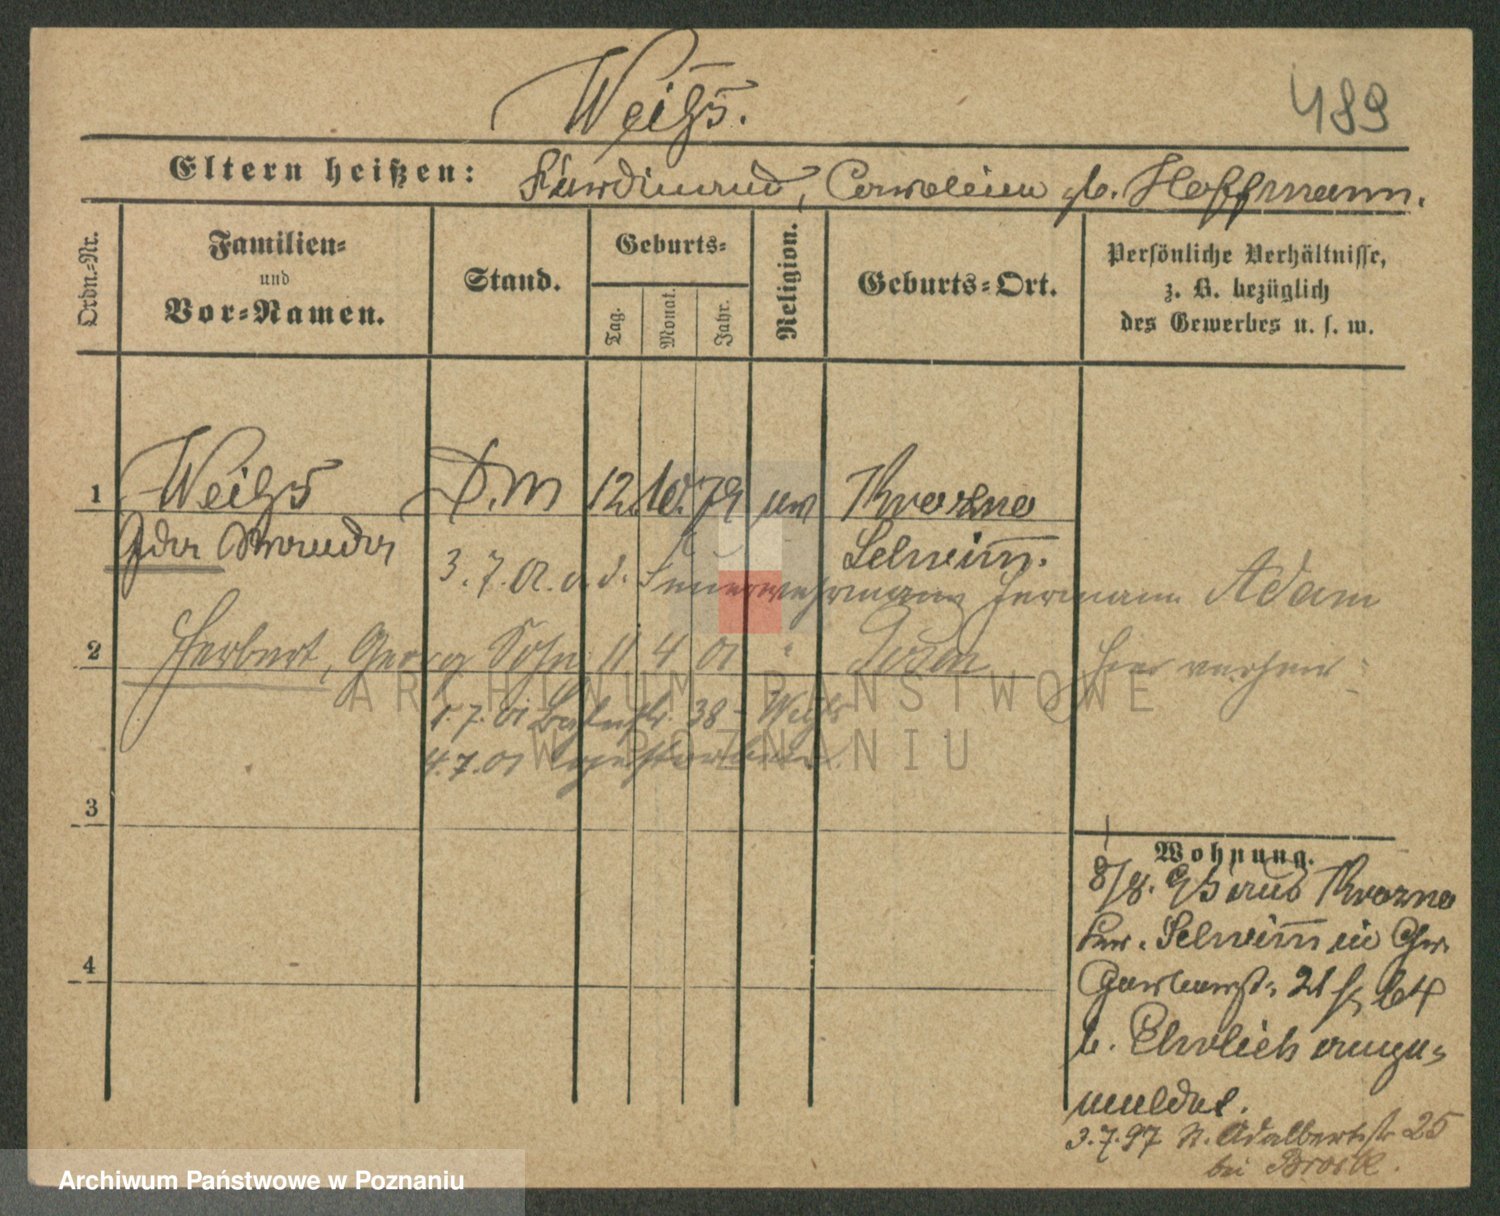 Weiß.
489
Eltern heißen: Ferdinand, Caroline gb. Hoffmann.
Ordn.-Nr.
Familien-
und
Vor-Namen.
Stand.
Geburts-
Tag.
Monat.
Jahr.
Religion.
Geburts-Ort.
Persönliche Verhältnisse,
z. B. bezüglich
des Gewerbes u. s. w.
1 Weiß D.M 12. 10. 79 Krosno
Schrimm.
3.7.01. a. d. Feuerwehrmann Hermann Adam
2 Herbert, Georg Sohn 11 4 01 " Posen hier
1.7.01 38 - Weiß
4.7.01
3
4
Wohnung.
8/8. 95 aus Krosno
Kr. Schrimm in
21
b. Ehrlich ange-
meldet.
3.7.97 St. Adalbertstr. 25
bei
ARCHIWUM PAŃSTWOWE
W POZNANIU
Archiwum Państwowe w Poznaniu